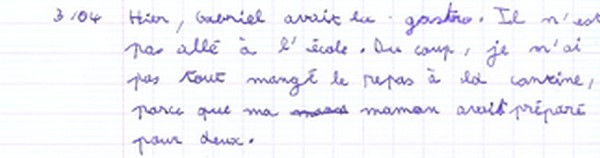 3/04 Hier, Gabriel avait la gastro. Il n'est
pas allé à l'école. Du coup, je n'ai
pas tout mangé le repas à la cantine,
parce que ma maman avait préparé
pour deux.